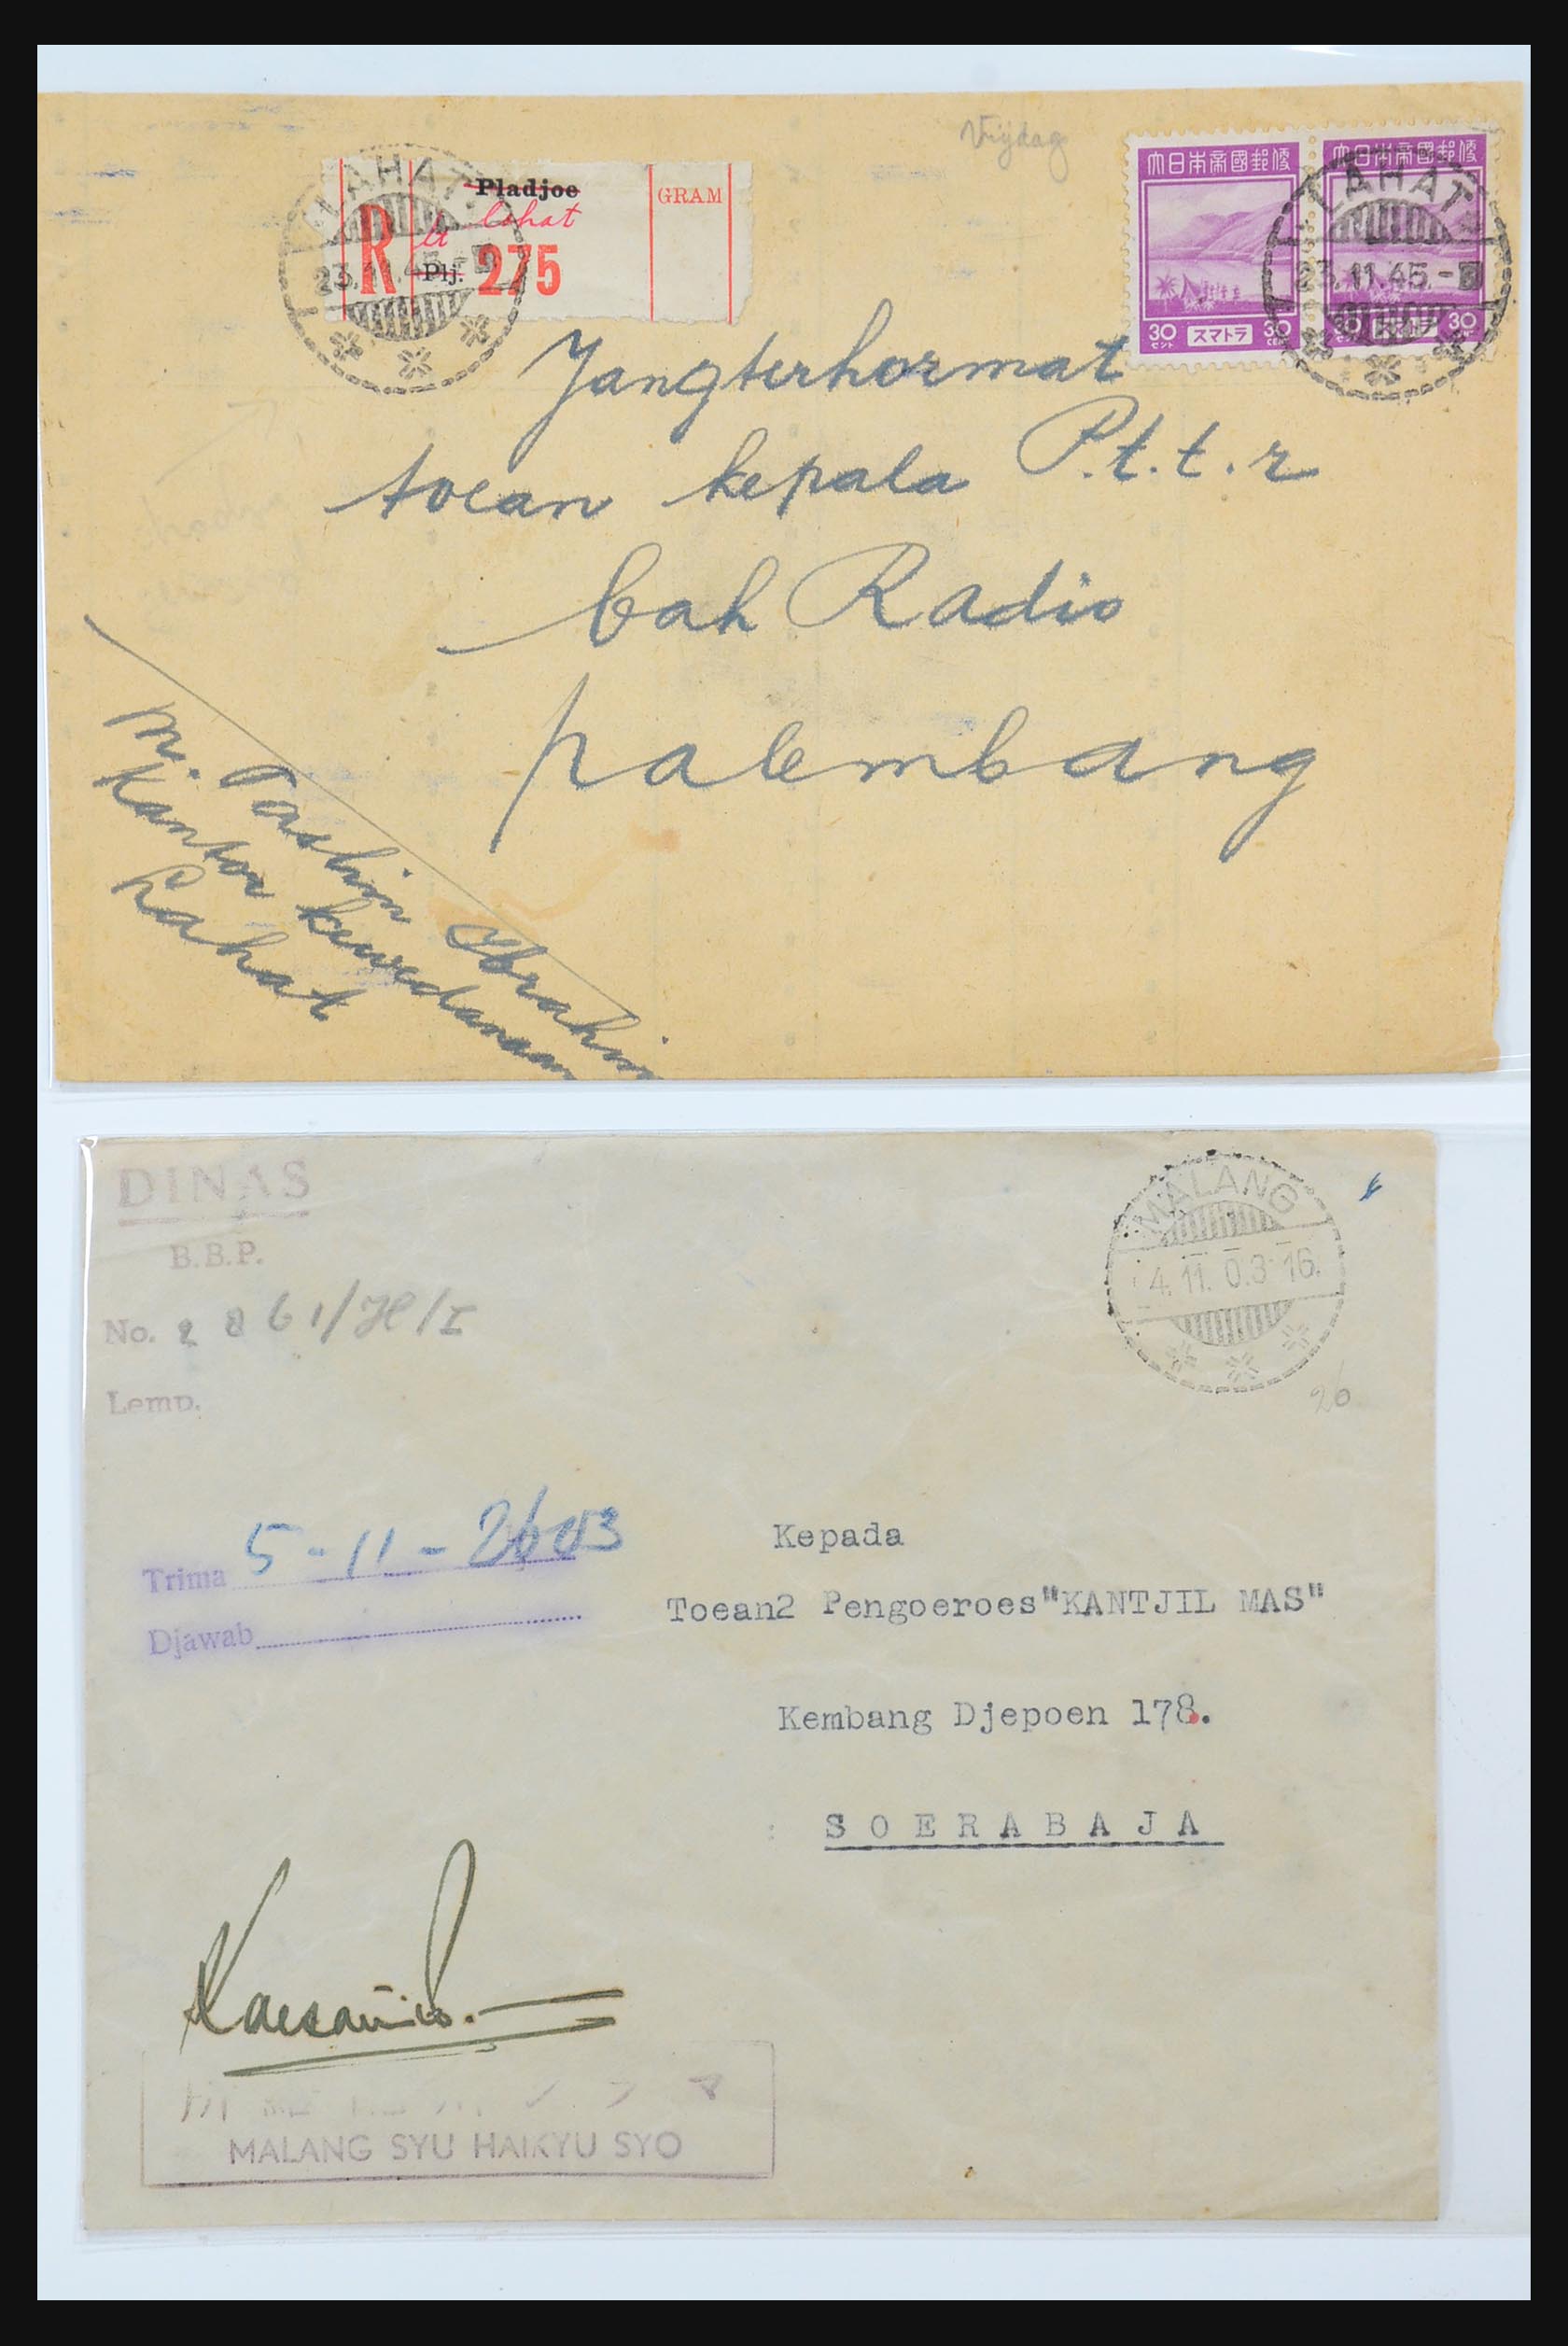 Vrijdag
LAHAT
R
Pladjoe
lahat
Lt
Plj. 275
GRAM
23.11.45.-
大日本帝國郵便
30 セント スマトラ 30 セント
大日本帝國郵便
30 スマトラ 30
LAHAT
23.11.45.-
Jangterhormat
toean kepala P.t.t.r
bah Radio
palembang
M. Tashim Ibrahim
Kantor kewedanaan
Lahat
DINAS
B.B.P.
No. 2861/
Lemp.
MALANG
4.11.03 16.
26
Trima 5-11-2603
Djawab
Kepada
Toean2 Pengoeroes "KANTJIL MAS"
Kembang Djepoen 178.
SOERABAJA
MALANG SYU HAIKYU SYO